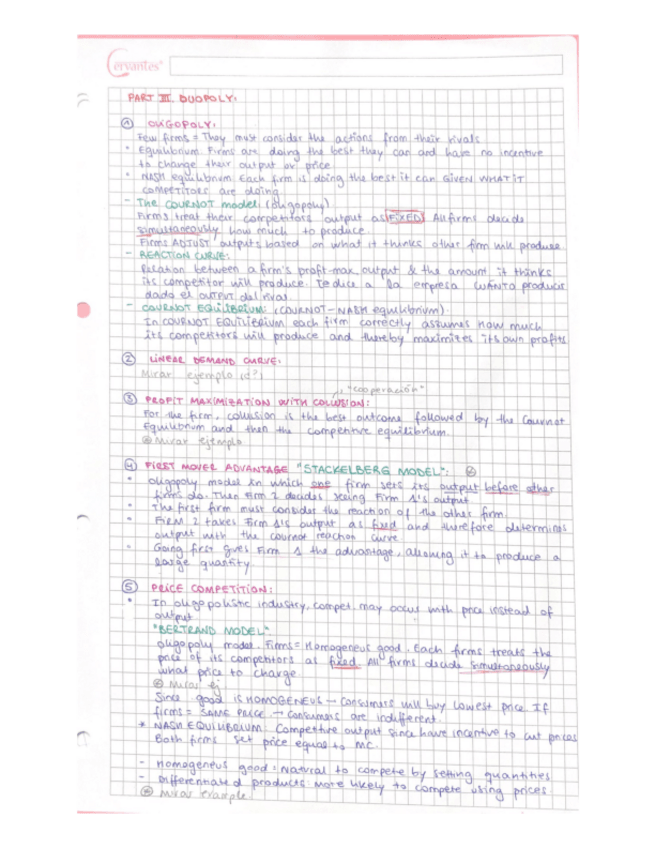 Cervantes
PART III. DUOPOLY:
① OLIGOPOLY:
Few firms = They must consider the actions from their rivals
• Equilibrium: Firms are doing the best they can and have no incentive
to change their output or price
• NASH equilibrium: Each firm is doing the best it can GIVEN WHAT IT
COMPETITORS are doing
- The COURNOT model: (oligopoly)
Firms treat their competitors output as FIXED. All firms decide
simultaneously how much to produce.
Firms ADJUST outputs based on what it thinks other firm will produce
- REACTION CURVE:
Relation between a firm's profit-max output & the amount it thinks
its competitor will produce. Te dice a la empresa CUÁNTO producir
dado el OUTPUT del rival.
- COURNOT EQUILIBRIUM: (COURNOT-NASH equilibrium)
In COURNOT EQUILIBRIUM each firm correctly assumes how much
its competitors will produce and thereby maximizes its own profits
② LINEAR DEMAND CURVE:
Mirar ejemplo
"cooperación"
③ PROFIT MAXIMIZATION WITH COLLUSION:
For the firm, collusion is the best outcome followed by the Cournot
Equilibrium and then the competitive equilibrium.
Mirar ejemplo
④ FIRST MOVER ADVANTAGE "STACKELBERG MODEL":
• oligopoly model in which one firm sets its output before other
firms do. Then Firm 2 decides seeing Firm 1's output
• The first firm must consider the reaction of the other firm.
- Firm 2 takes Firm 1's output as fixed and therefore determines
output with the cournot reaction curve
- Going first gives Firm 1 the advantage, allowing it to produce a
large quantity
⑤ PRICE COMPETITION:
• In oligopolistic industry, compet. may occur with price instead of
output
"BERTRAND MODEL"
oligopoly model. Firms = Homogeneus good. Each firms treats the
price of its competitors as fixed All firms decide simultaneously
what price to charge
Mirar ej
Since good is HOMOGENEUS → Consumers will buy lowest price If
firms = SAME PRICE → Consumers are indifferent.
* NASH EQUILIBRIUM: Competitive output since have incentive to cut prices
Both firms set price equal to MC.
- Homogeneus good: Natural to compete by setting quantities
- Differentiated products: more likely to compete using prices
Mirar example